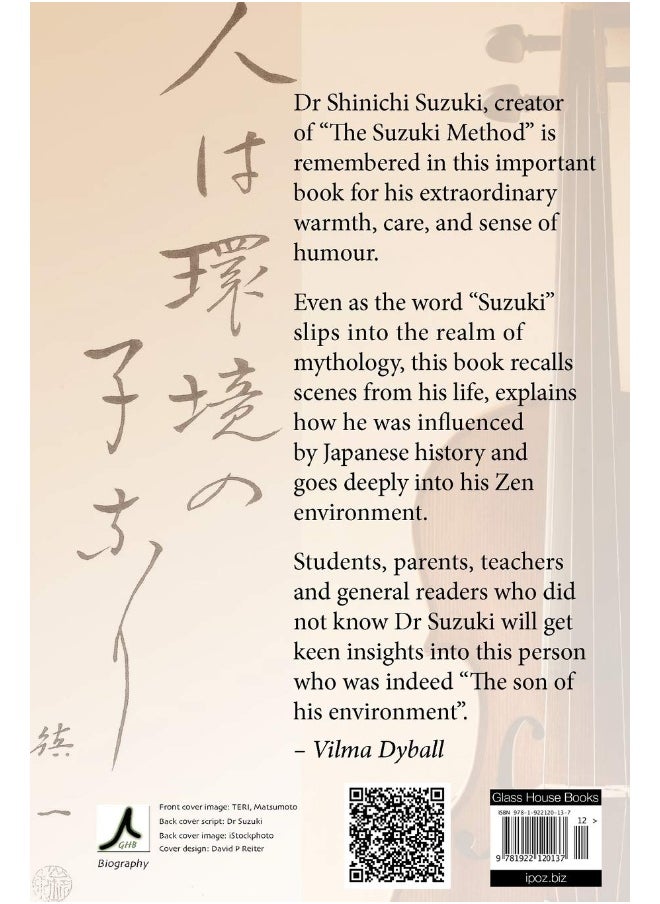 人は環境の
子なり
鎮一
Dr Shinichi Suzuki, creator
of “The Suzuki Method” is
remembered in this important
book for his extraordinary
warmth, care, and sense of
humour.
Even as the word “Suzuki”
slips into the realm of
mythology, this book recalls
scenes from his life, explains
how he was influenced
by Japanese history and
goes deeply into his Zen
environment.
Students, parents, teachers
and general readers who did
not know Dr Suzuki will get
keen insights into this person
who was indeed “The son of
his environment”.
– Vilma Dyball
GHB
Biography
Front cover image: TERI, Matsumoto
Back cover script: Dr Suzuki
Back cover image: iStockphoto
Cover design: David P Reiter
Glass House Books
ISBN 978-1-922120-13-7
12 >
9 781922 120137
ipoz.biz